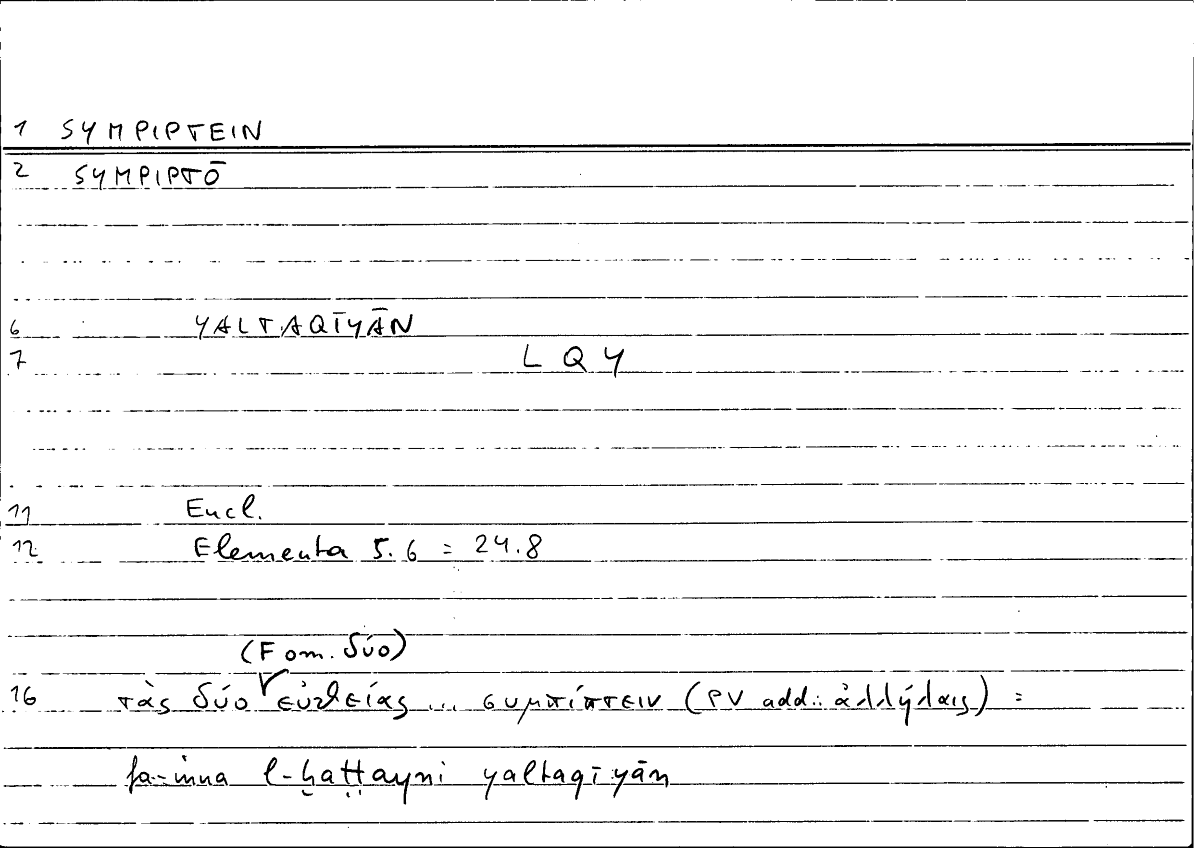 1 SYMPIPTEIN
2 SYMPIPTŌ
6 YALTAQĪYĀN
7 L Q Y
11 Eucl.
12 Elementa 5.6 = 24.8
(F om. δύο)
16 τὰς δύο εὐθείας ... συμπίπτειν (PV add.: ἀλλήλαις) =
fa-inna l-ḫaṭṭayni yaltaqīyān